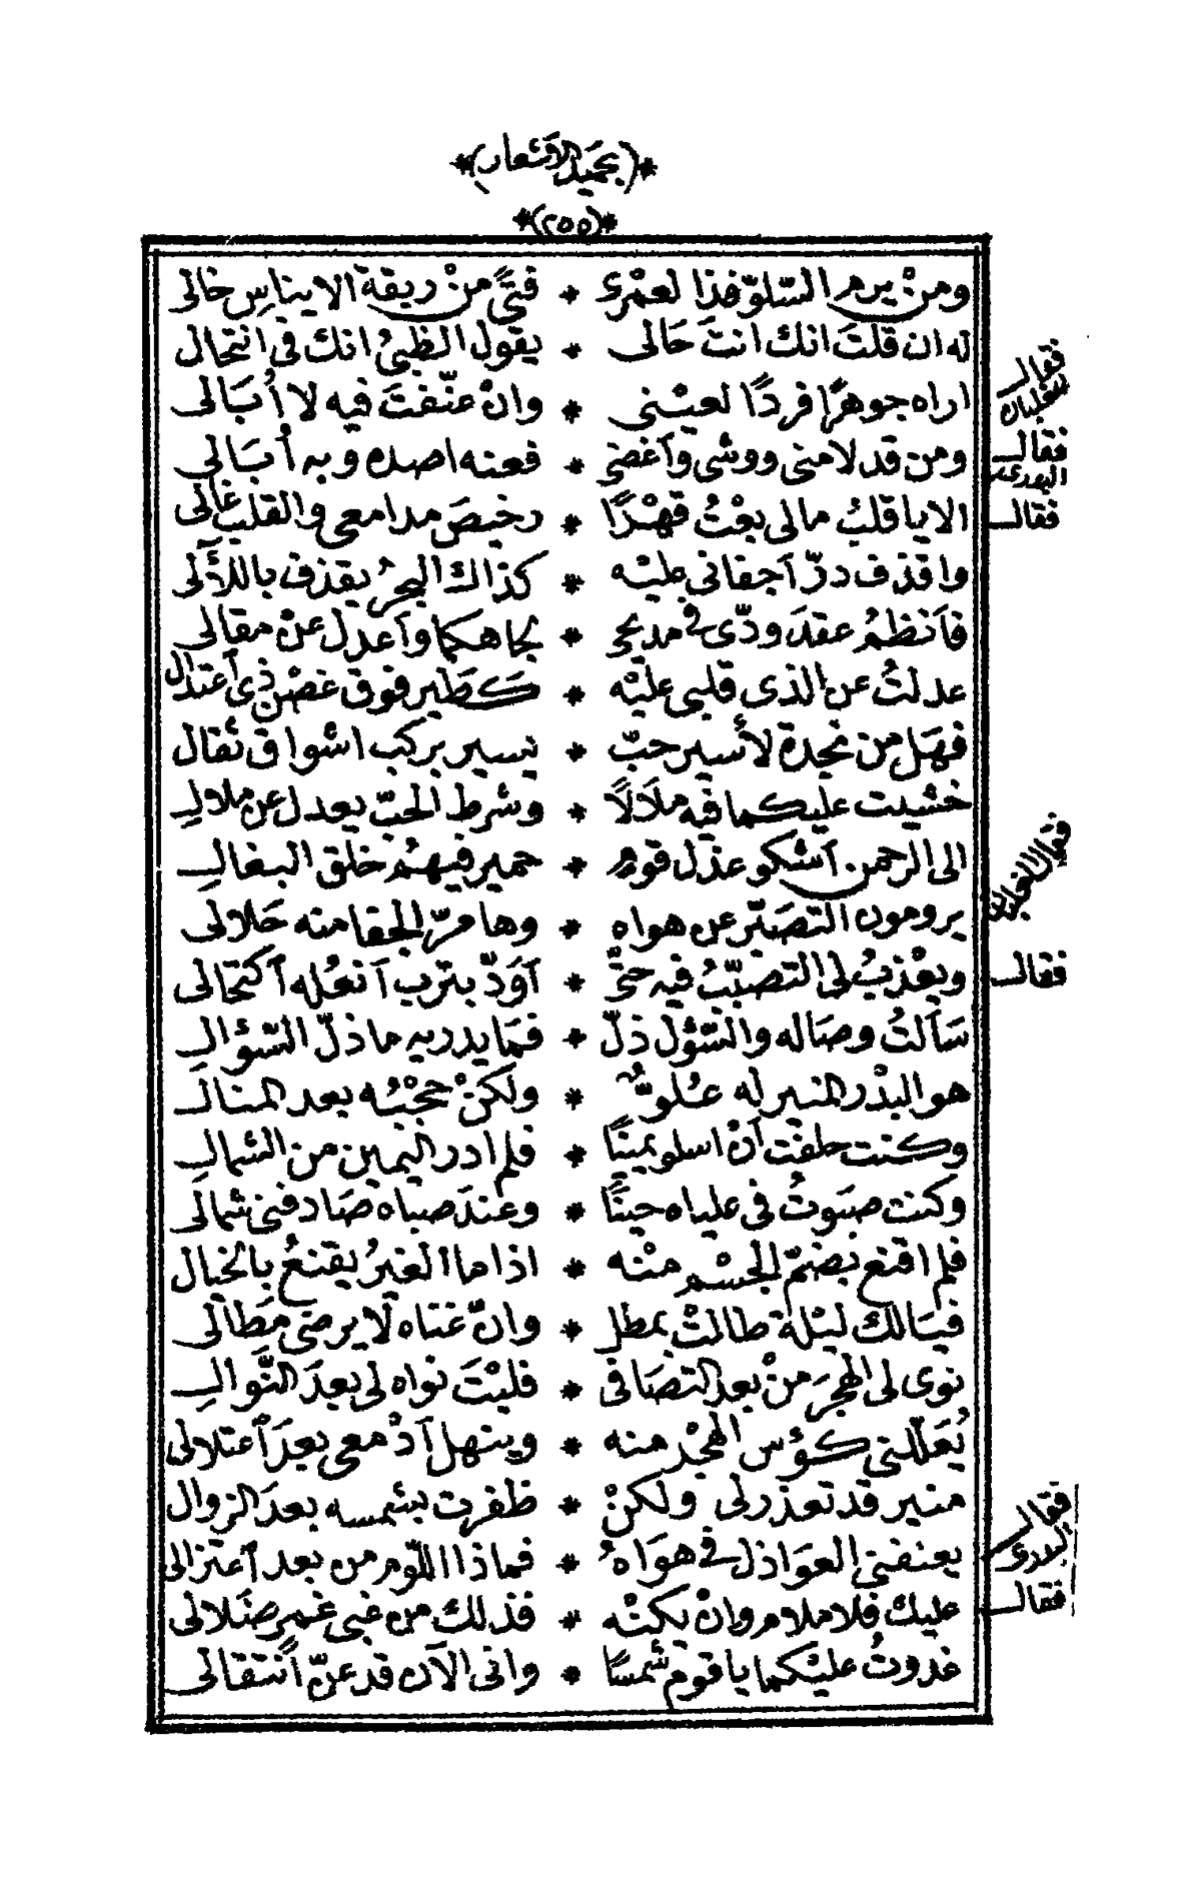 *(بجميد الأشعار)*
*(٢٥٥)*
ومنْ يرم السّلوّ فذا لعمْرى * فتىً منْ ريقة الايناسِ خالى
له ان قلتَ انك انتَ حَالى * يقول الظبىُ انك فى انتحال
فقال
اراه جوهرًا فردًا لعيْنى * وانْ عنّفتَ فيه لا أُبَالى
فقال
ومن قد لامنى ووشى وأغضى * فعنه اصد وبه أُبَالى
فقال
الا يا قلبُ مالى بعْتُ قهْرًا * رخيصَ مدامعى والقلب غالى
واقذف درّ أجفانى عليْه * كذاك البحرُ يقذف باللآلى
فأنظمُ عقدَ ودّى فى مديحى * بجاهكما وأعدل عنْ مقالى
عدلتُ عن الذى قلبى عليْه * كطَيْر فوق غصْن ذى أعتدال
فهَل من نجدة لأسير حبّ * يسير بركب اشواق ثقال
خشيت عليكما فيه ملَالًا * وشرط الحبّ يعدل عن ملالِ
الى الرحمن أشكو عذل قوم * حمير فيهمْ خلق البغالِ
يرومون التصَبّر عن هواه * وها مرّ الجفا منه حَلالى
فقال
ويعْذبُ لى التصبّبُ فيه حتّى * أوَدّ بترب أنعُله أكتحالى
سَألتُ وصاله والسّؤل ذلّ * فمَا يدريه ما ذلّ السّؤالِ
هو البدْر المنير له عُلوٌّ * ولكنْ حجبُه بعد المنالِ
وكنت حلفت أنْ اسلو يمينًا * فلم ادر اليمين من الشمالِ
وكنت صبَوتُ فى علياه حينًا * وعندَ صباه صَاد فنى شمالى
فلم اقنع بضمّ الجسْم منْه * اذا ما الغيرُ يقنعُ بالخيال
فيَالك ليْلة طالتْ بمطل * وانّ غناه لا يرضى مَطالى
نوى لى الهجرَ منْ بعد التصَافى * فليْتَ نواه لى بعدَ النَّوالِ
يُعَلّلنى كؤس الهجْر منه * وينهل أدْمعى بعدَ أعتلالى
منير قد تعذر لى ولكنْ * ظفرت بشمسه بعدَ الزوال
فقال
يعنفنى العوَاذل فى هوَاهُ * فماذا اللّوم من بعد أعتزالى
فقال
عليك فلا ملام وانْ بكتْه * فذلك من غبى غير ضَلالى
غدوتُ عليْكما يا قوم شمسًا * وانى الآن قد عنّ أنتقالى